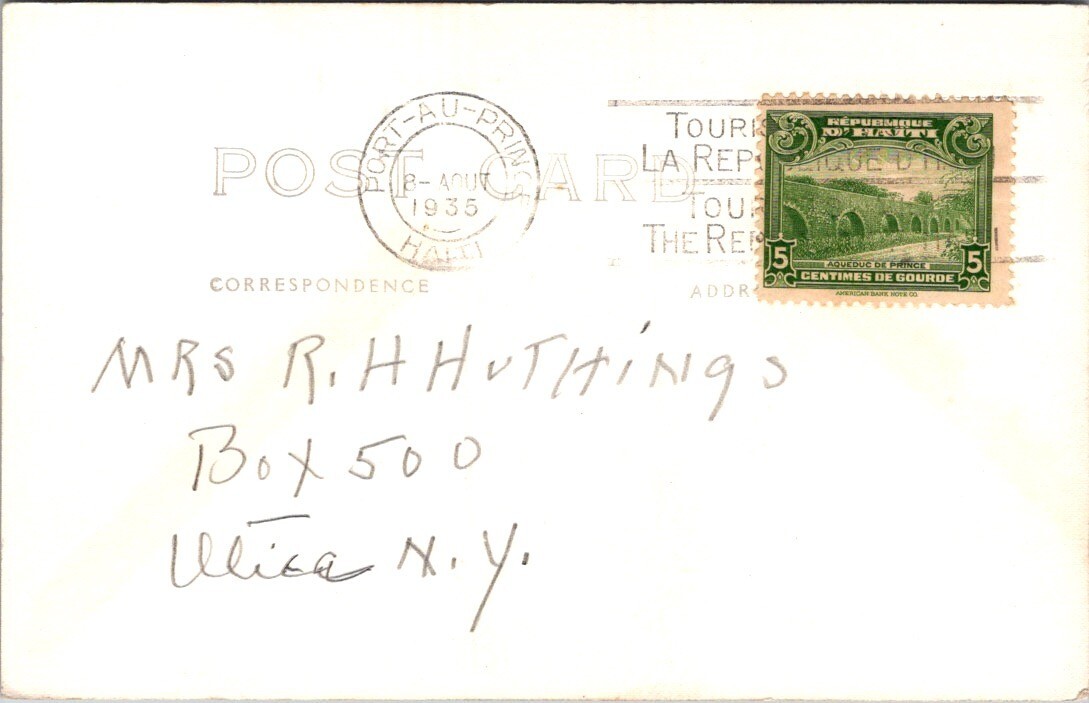 POST CARD
PORT-AU-PRINCE
8- AOUT
1935
HAITI
TOURIS
LA REPUBLIQUE D'H
TOUR
THE REP
RÉPUBLIQUE
D'HAITI
5
AQUEDUC DE PRINCE
5
CENTIMES DE GOURDE
AMERICAN BANK NOTE CO.
CORRESPONDENCE
ADDR
MRS R. H HUTHiNgS
Box 500
Utica N.Y.